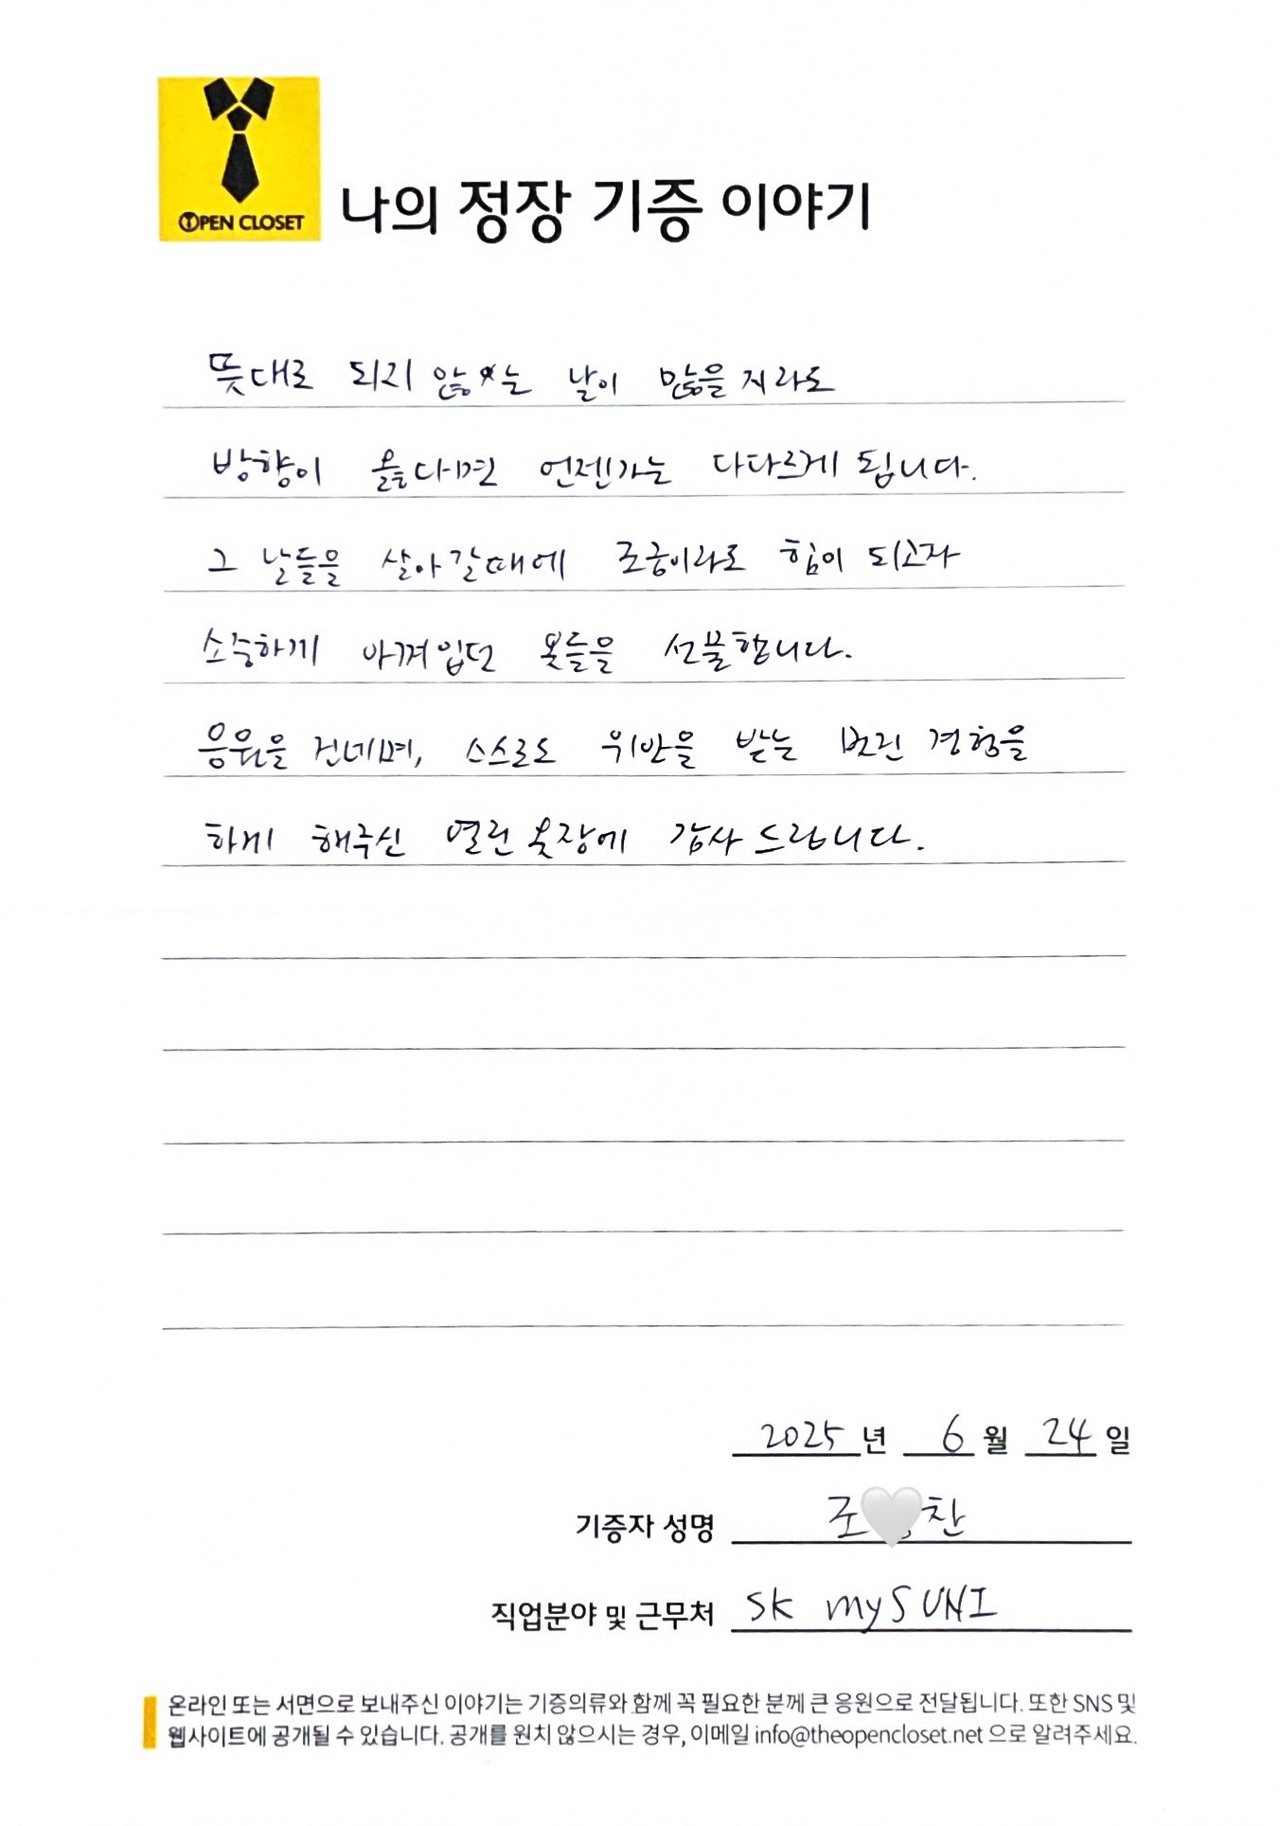 OPEN CLOSET
나의 정장 기증 이야기
뜻대로 되지 않는 날이 많을지라도
방향이 옳다면 언젠가는 다다르게 됩니다.
그 날들을 살아갈때에 조금이라도 힘이 되고자
소중하게 아껴입던 옷들을 선물합니다.
응원을 건네며, 스스로도 위안을 받는 멋진 경험을
하게 해주신 열린옷장에 감사드립니다.
2025년 6월 24일
기증자 성명 조 찬
직업분야 및 근무처 SK mySUNI
온라인 또는 서면으로 보내주신 이야기는 기증의류와 함께 꼭 필요한 분께 큰 응원으로 전달됩니다. 또한 SNS 및
웹사이트에 공개될 수 있습니다. 공개를 원치 않으시는 경우, 이메일 info@theopencloset.net 으로 알려주세요.